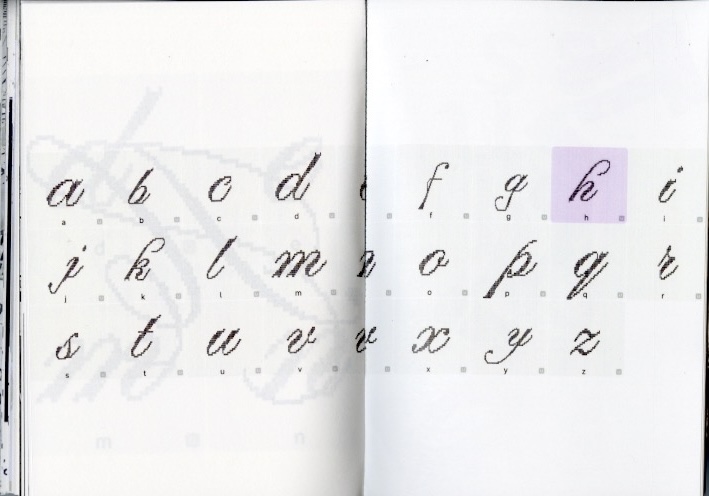 a b c d f g h i
a b c d f g h i
j k l m o p q r
j k l m o p q r
s t u v x y z
s t u v x y z
m n